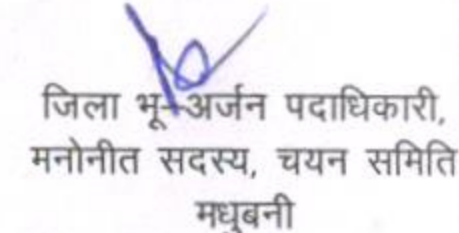 जिला भू-अर्जन पदाधिकारी,
मनोनीत सदस्य, चयन समिति
मधुबनी